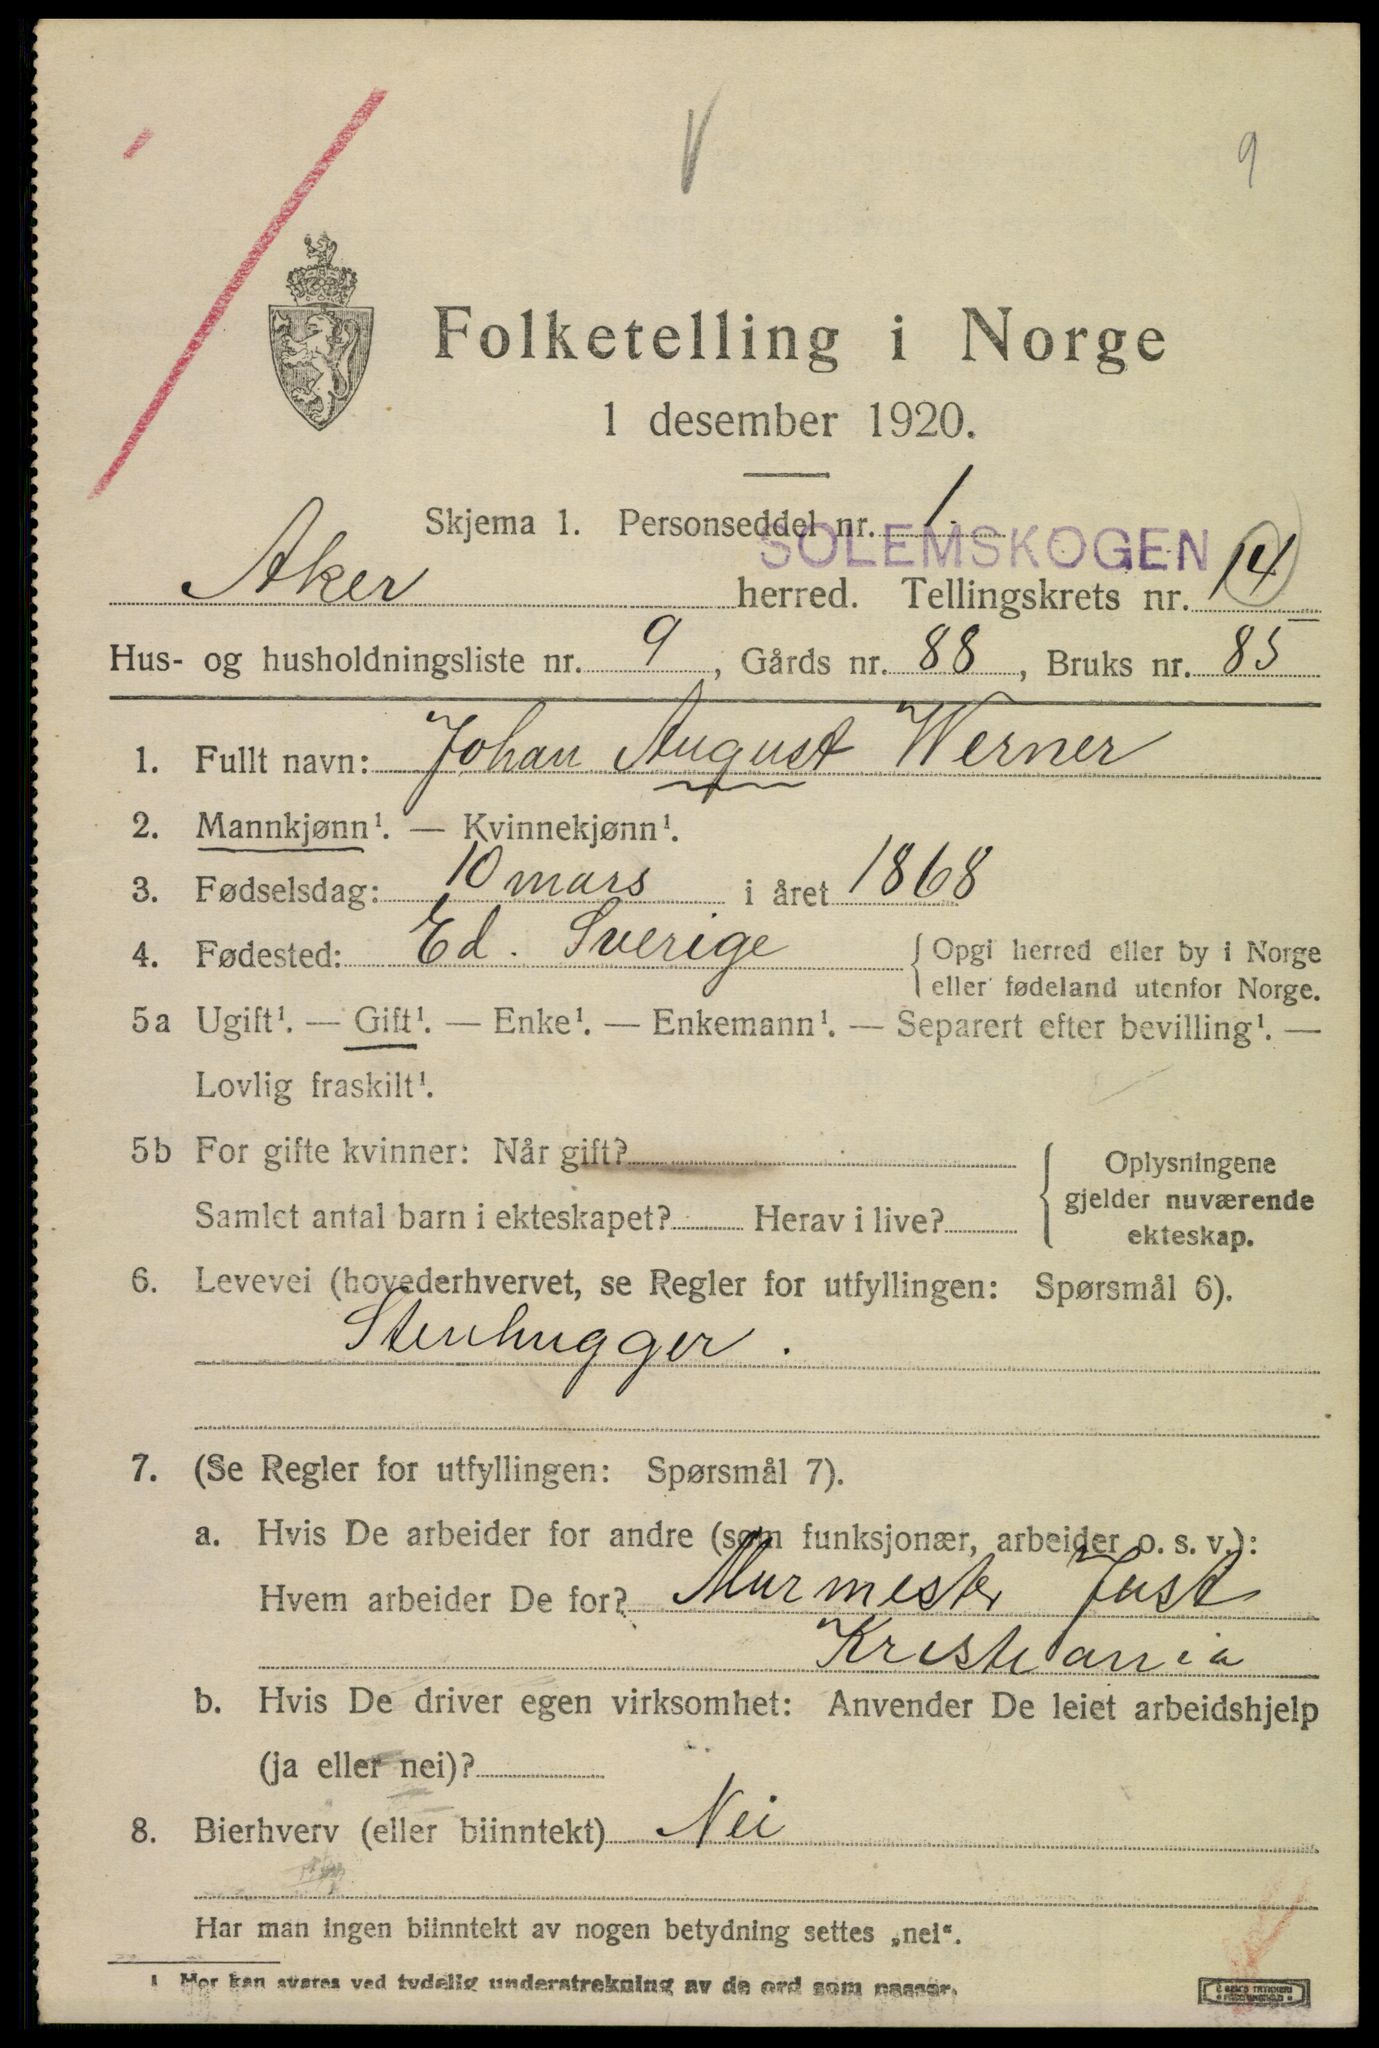 V
9
Folketelling i Norge
1 desember 1920.
Skjema 1. Personseddel nr. 1.
SOLEMSKOGEN
Aker herred. Tellingskrets nr. 14
Hus- og husholdningsliste nr. 9, Gårds nr. 88, Bruks nr. 85
1. Fullt navn: Johan August Werner
2. Mannkjønn¹. — Kvinnekjønn¹.
3. Fødselsdag: 10 mars i året 1868
4. Fødested: Ed. Sverige { Opgi herred eller by i Norge
eller fødeland utenfor Norge.
5a Ugift¹. — Gift¹. — Enke¹. — Enkemann¹. — Separert efter bevilling¹. —
Lovlig fraskilt¹.
5b For gifte kvinner: Når gift?
Samlet antal barn i ekteskapet? Herav i live?
Oplysningene
gjelder nuværende
ekteskap.
6. Levevei (hovederhvervet, se Regler for utfyllingen: Spørsmål 6).
Stenhugger.
7. (Se Regler for utfyllingen: Spørsmål 7).
a. Hvis De arbeider for andre (som funksjonær, arbeider o. s. v.):
Hvem arbeider De for? Murmester Just
Kristiania
b. Hvis De driver egen virksomhet: Anvender De leiet arbeidshjelp
(ja eller nei)?
8. Bierhverv (eller biinntekt) Nei
Har man ingen biinntekt av nogen betydning settes „nei“.
1 Her kan svares ved tydelig understrekning av de ord som passer.